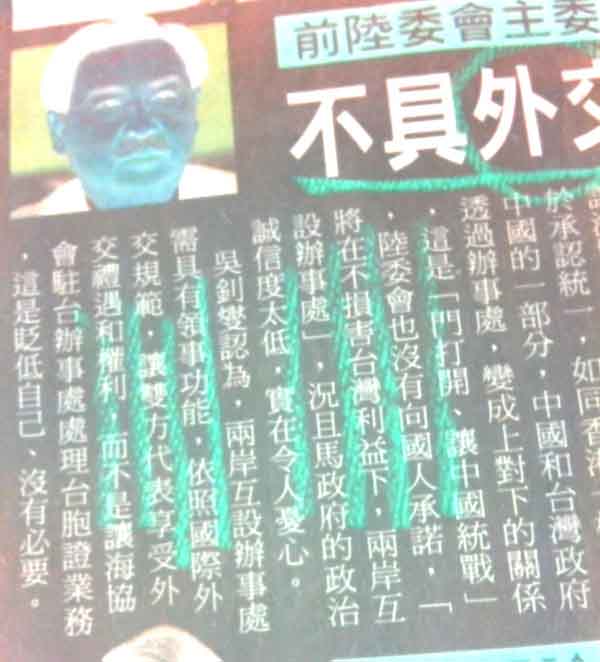 前陸委會主委
不具外交
於承認統一，如同香港一
中國的一部分，中國和台灣政府
透過辦事處，變成上對下的關係
，這是「門打開、讓中國統戰」
，陸委會也沒有向國人承諾，「
將在不損害台灣利益下，兩岸互
設辦事處」，況且馬政府的政治
誠信度太低，實在令人憂心。
吳釗燮認為，兩岸互設辦事處
需具有領事功能，依照國際外
交規範，讓雙方代表享受外
交禮遇和權利，而不是讓海協
會駐台辦事處處理台胞證業務
，這是貶低自己、沒有必要。